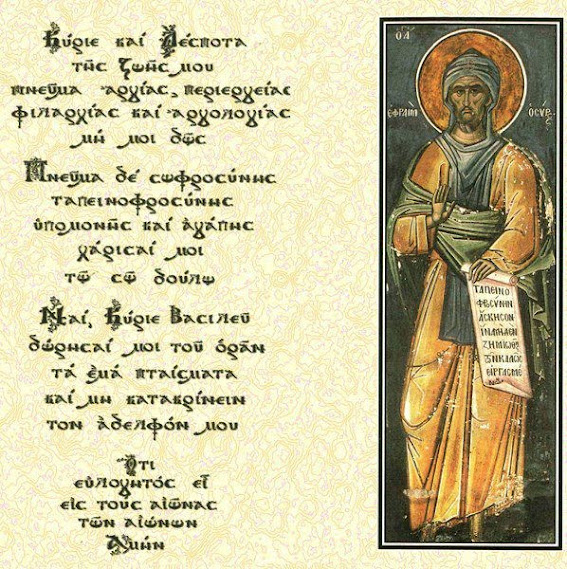 Κύριε καί Δέσποτα
τῆς ζωῆς μου
πνεῦμα ἀργίας, περιεργείας
φιλαρχίας καί ἀργολογίας
μή μοι δῷς
Πνεῦμα δέ σωφροσύνης
ταπεινοφροσύνης
ὑπομονῆς καί ἀγάπης
χάρισαί μοι
τῷ σῷ δούλῳ
Ναί, Κύριε Βασιλεῦ
δώρησαί μοι τοῦ ὁρᾶν
τά ἐμά πταίσματα
καί μη κατακρίνειν
τον ἀδελφόν μου
Ὅτι
εὐλογητός εἶ
εἰς τους αἰῶνας
τῶν αἰώνων
Ἀμήν
Ο Α
ΕΦΡΑΙΜ Ο ΣΥΡΣ
ΤΑΠΕΙΝΟ
ΦΡΟΣΥΝΗΝ
ΑΣΚΗΣΟΝ